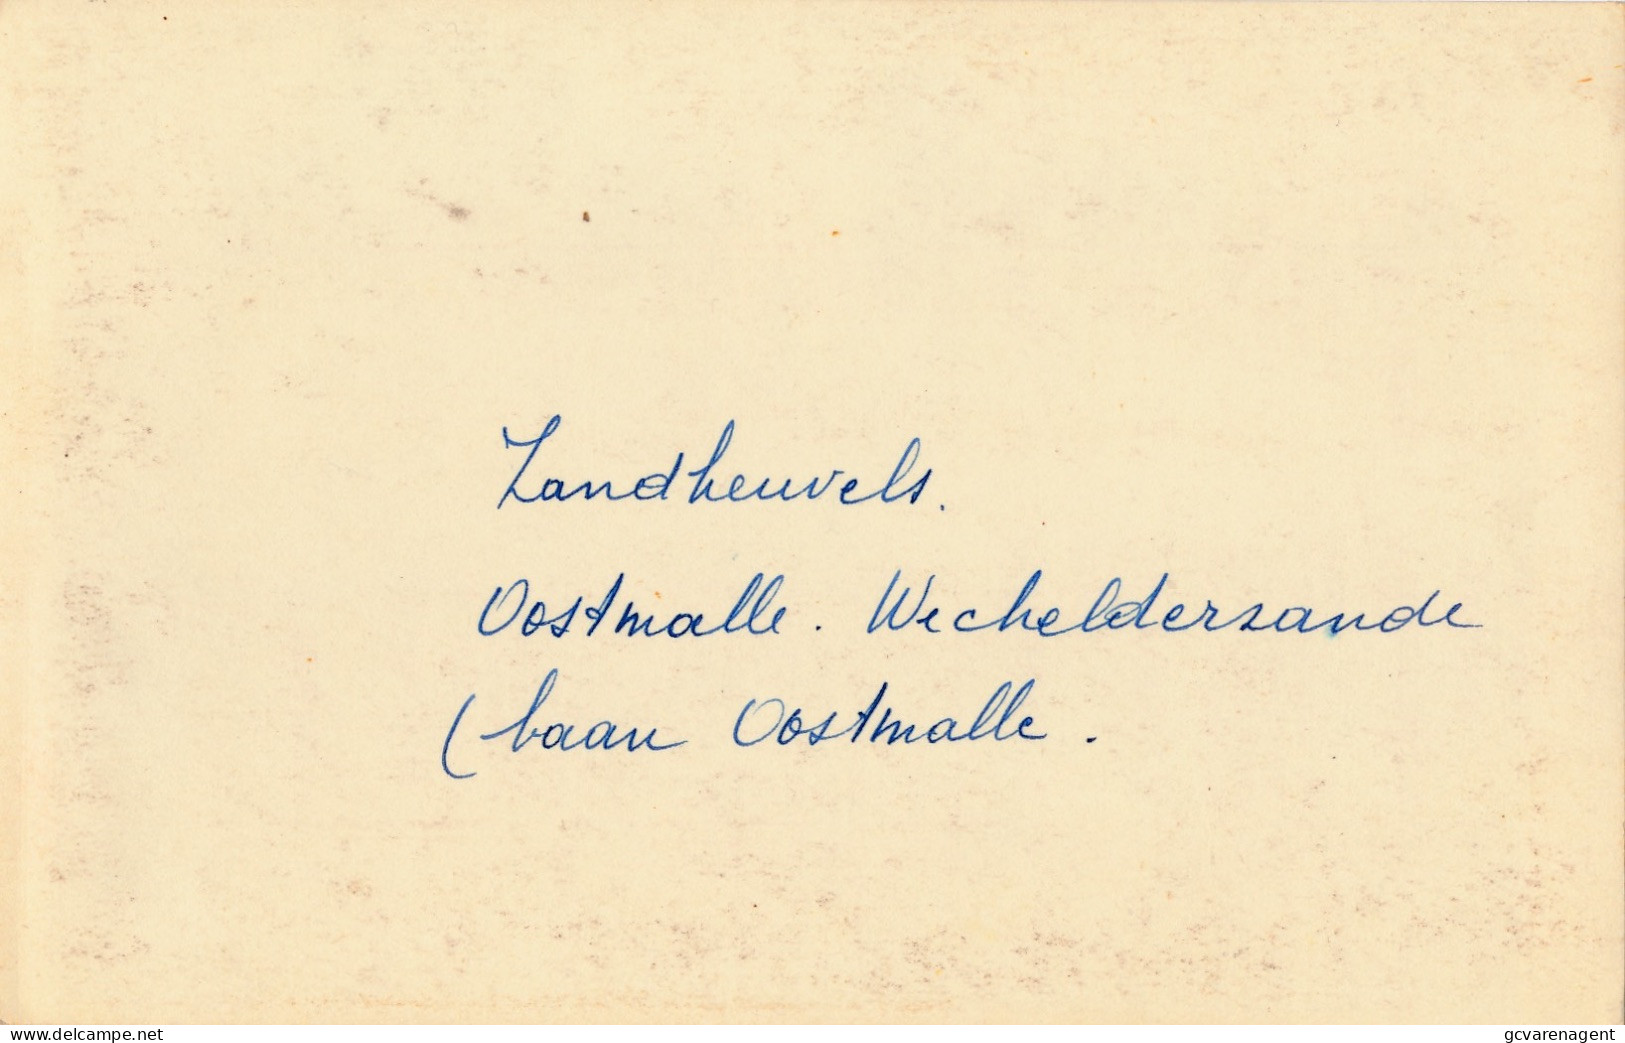 Zandheuvels.
Oostmalle. Wechelderzande
(baan Oostmalle.
www.delcampe.net
gcvarenagent